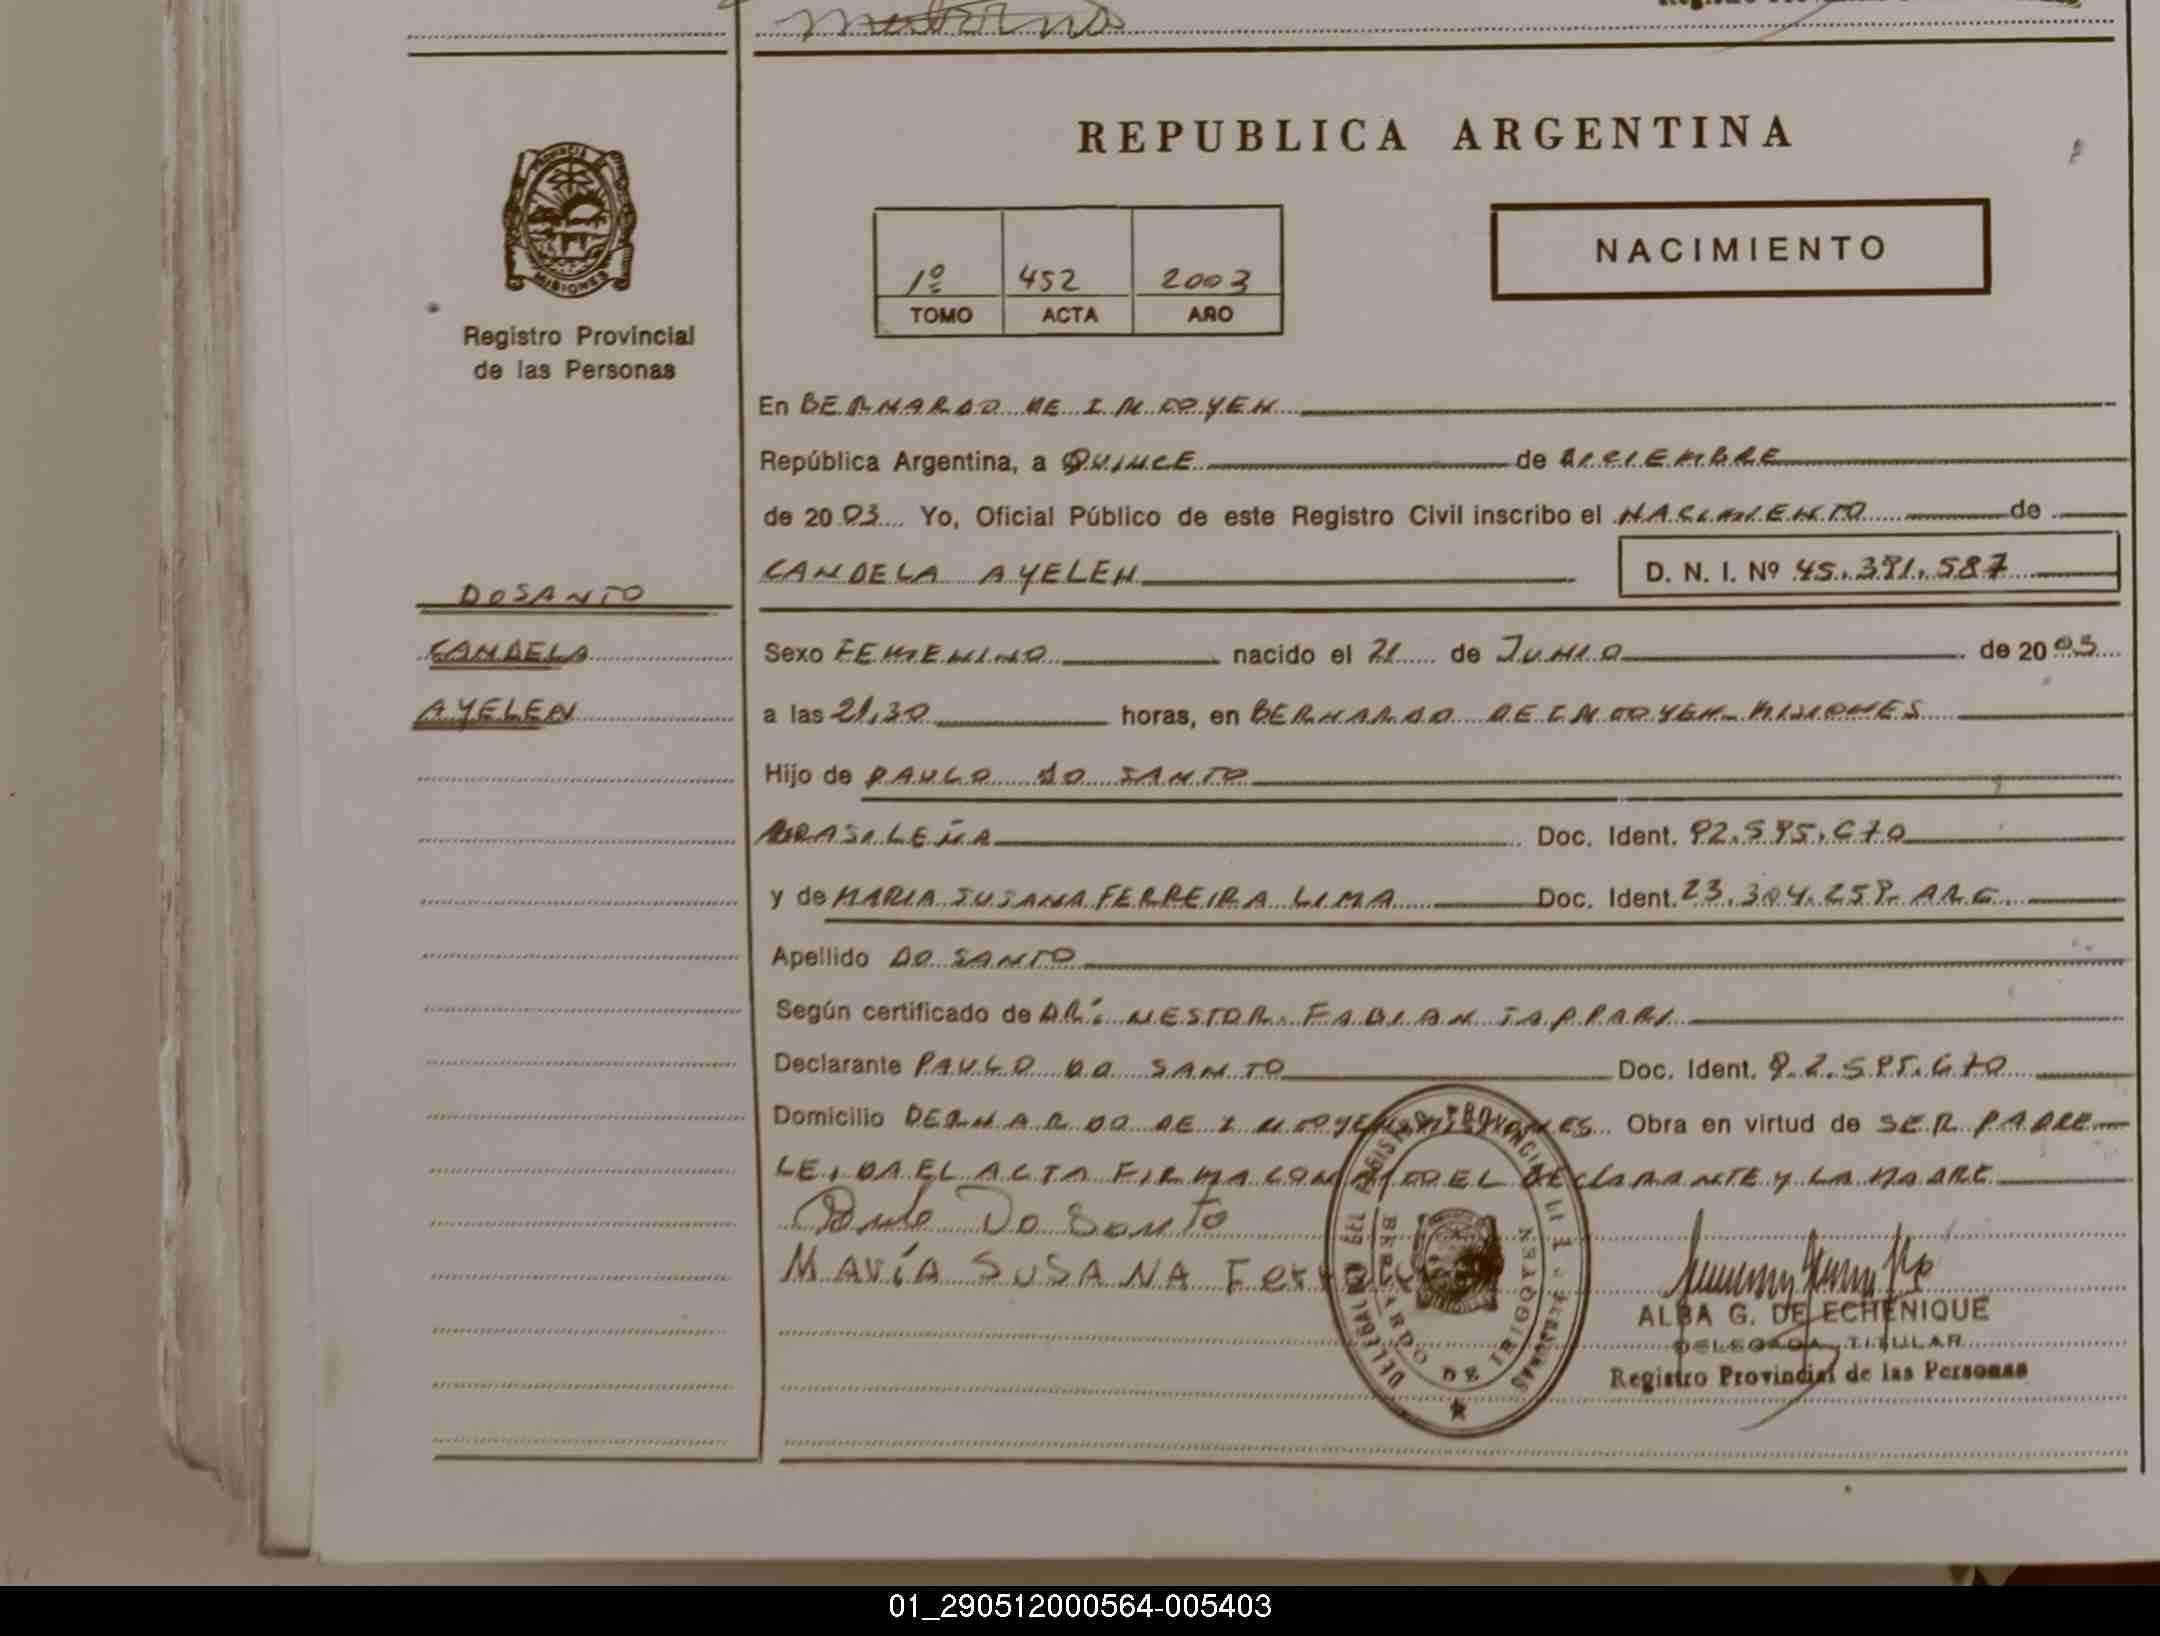 materno
REPUBLICA ARGENTINA
PROVINCIA DE
MISIONES
1º 452 2003
TOMO ACTA AÑO
NACIMIENTO
Registro Provincial
de las Personas
En BERNARDO DE IRIGOYEN
República Argentina, a QUINCE de DICIEMBRE
de 20 03 Yo, Oficial Público de este Registro Civil inscribo el NACIMIENTO de
CANDELA AYELEN D. N. I. Nº 45.391.587
DO SANTO
CANDELA
AYELEN
Sexo FEMENINO nacido el 21 de JUNIO de 20 03
a las 21,30 horas, en BERNARDO DE IRIGOYEN - MISIONES
Hijo de PAULO DO SANTO
BRASILEÑA Doc. Ident. 92.595.670
y de MARIA SUSANA FERREIRA LIMA Doc. Ident. 23.304.259- ARG.
Apellido DO SANTO
Según certificado de DR: NESTOR FABIAN JAPPARI
Declarante PAULO DO SANTO Doc. Ident. 92.595.670
Domicilio BERNARDO DE IRIGOYEN MISIONES Obra en virtud de SER PADRE
LEIDA EL ACTA FIRMA CONMIGO EL DECLARANTE Y LA MADRE
Paulo Do Santo
MARÍA SUSANA
DELEGACION DEL REGISTRO PROVINCIAL DE LAS PERSONAS
BERNARDO DE IRIGOYEN
ALBA G. DE ECHENIQUE
DELEGADA TITULAR
Registro Provincial de las Personas
01_290512000564-005403